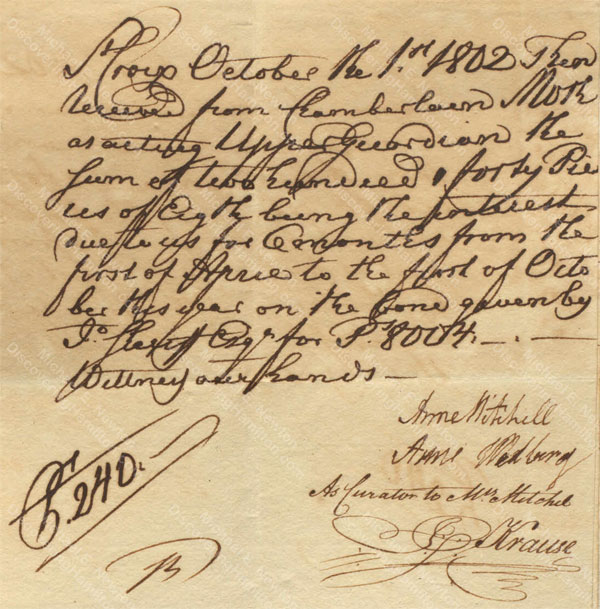 St Croix October the 1.st 1802 Then
received from Chamberlain Moth
as acting Upper Guardian the
Sum of two hundred & forty Pie
ces of Eight being the interest
due to us for 6 months from the
first of April to the first of Octo
ber this year on the bond given by
Esqr for Ps. 8004. — . —
Wittney our hands —
Anne Mitchell
Anne Wedberg
As Curator to Mrs Mitchel
Krause
Ps. 240.